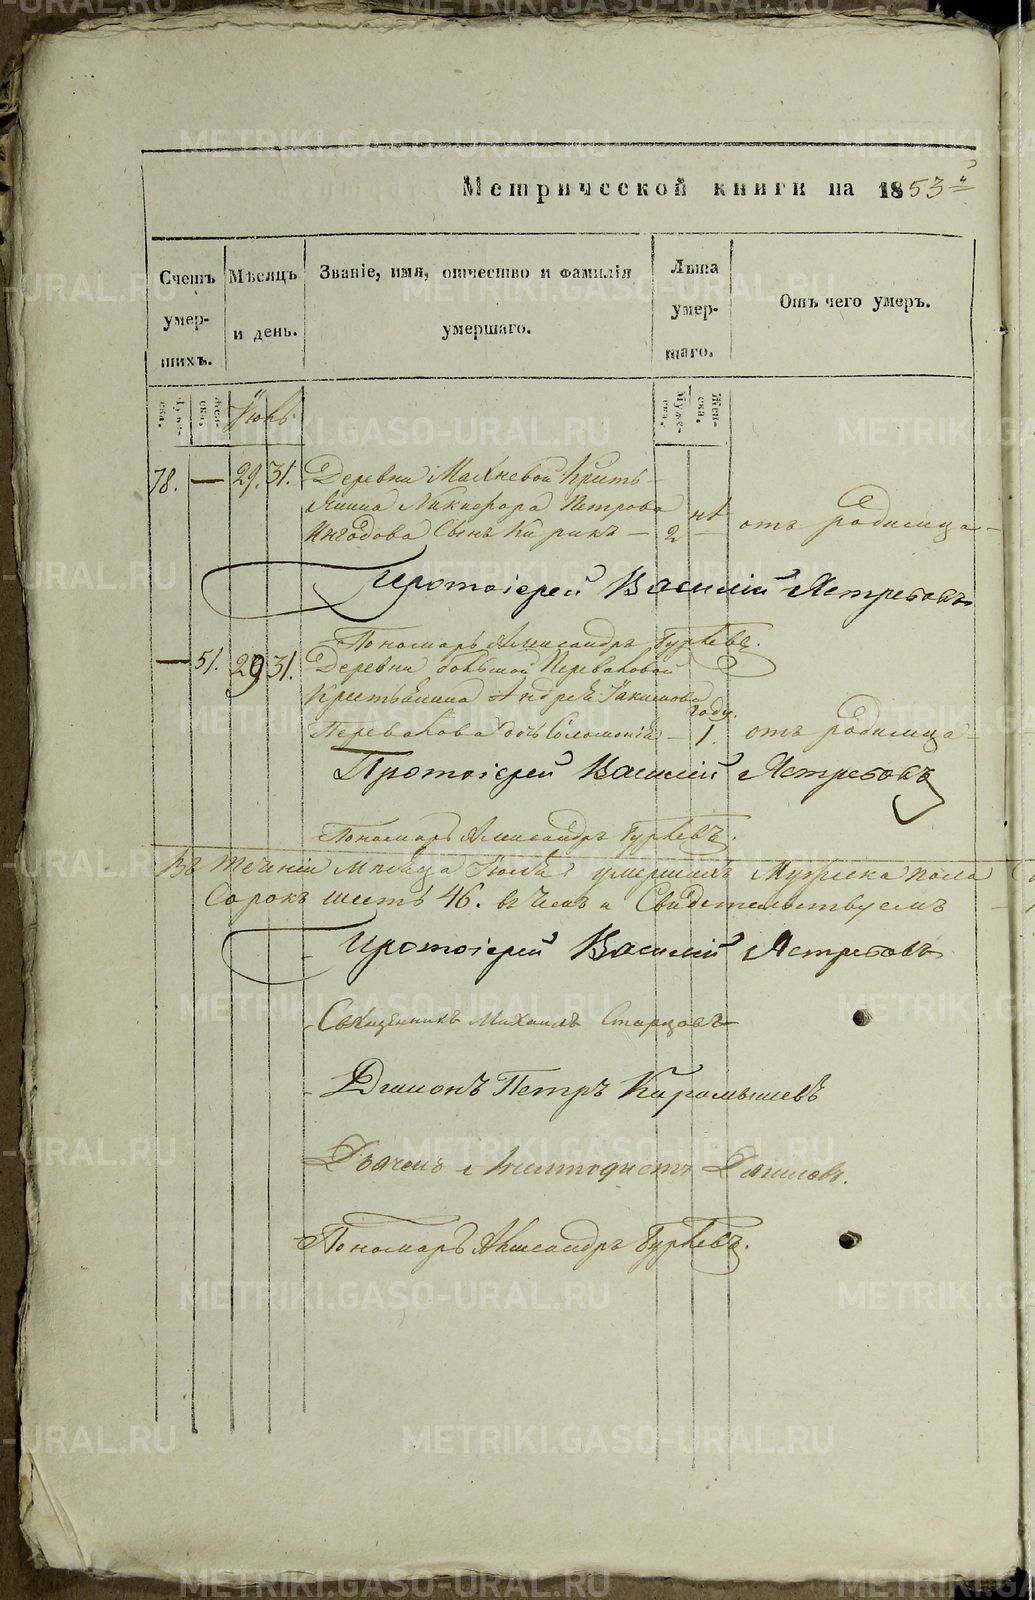 Метрической книги на 1853й
Счетъ умершихъ.
Мѣсяцъ и день.
Званіе, имя, отчество и фамилія умершаго.
Лѣта умершаго.
Отъ чего умеръ.
Мужеска. Женска.
Июль
Мужеска. Женска.
78. — 29. 31. Деревни Махневой Кресть-
янина Никифора Петрова
сынъ Кирикъ — 2 отъ родимца —
Протоіерей Василій Ястребовъ
Пономарь Александръ
— 51. 29 31. Деревни большой Переваловой
Крестьянина Андрея
Году.
Перевалова дочь Соломонія — 1. отъ родимца —
Протоіерей Василій Ястребовъ
Пономарь Александръ
Въ теченіи Месяца Июля умершихъ Мужеска пола
Сорокъ шесть 46. въ чемъ и Свидетельствуемъ
Протоіерей Василій Ястребовъ
Священникъ Михаилъ Старцовъ
Діаконъ Петръ Карамышевъ
Дьячекъ
Пономарь Александръ
METRIKI.GASO-URAL.RU